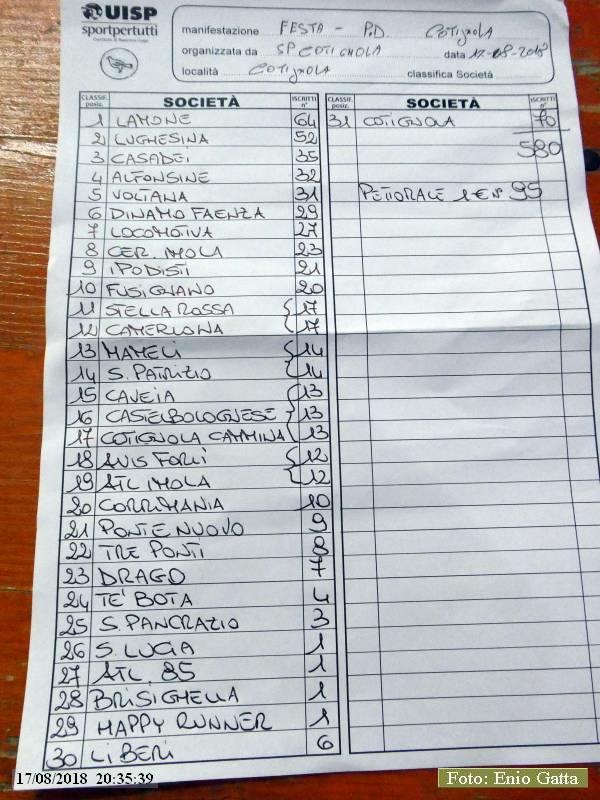 UISP
sportpertutti
manifestazione FESTA - P.D. COTIGNOLA
organizzata da SP COTIGNOLA data 17-08-2018
località COTIGNOLA classifica Società
CLASSIF. posiz. SOCIETÀ ISCRITTI n° CLASSIF. posiz. SOCIETÀ ISCRITTI n°
1 LAMONE 64 31 COTIGNOLA 70
2 LUGHESINA 52 580
3 CASADEI 35
4 ALFONSINE 32
5 VOLTANA 31 PETTORALE 1 € N° 95
6 DINAMO FAENZA 29
7 LOCOMOTIVA 27
8 CER. IMOLA 23
9 IPODISTI 21
10 FUSIGNANO 20
11 STELLA ROSSA 17
12 CAMERLONA 17
13 MAMELI 14
14 S. PATRIZIO 14
15 CAVEIA 13
16 CASTELBOLOGNESE 13
17 COTIGNOLA CAMMINA 13
18 AVIS FORLÌ 12
19 ATL IMOLA 12
20 CORRIMANIA 10
21 PONTE NUOVO 9
22 TRE PONTI 8
23 DRAGO 7
24 TE' BOTA 4
25 S. PANCRAZIO 3
26 S. LUCIA 1
27 ATL. 85 1
28 BRISIGHELLA 1
29 HAPPY RUNNER 1
30 LIBERI 6
17/08/2018 20:35:39
Foto: Enio Gatta